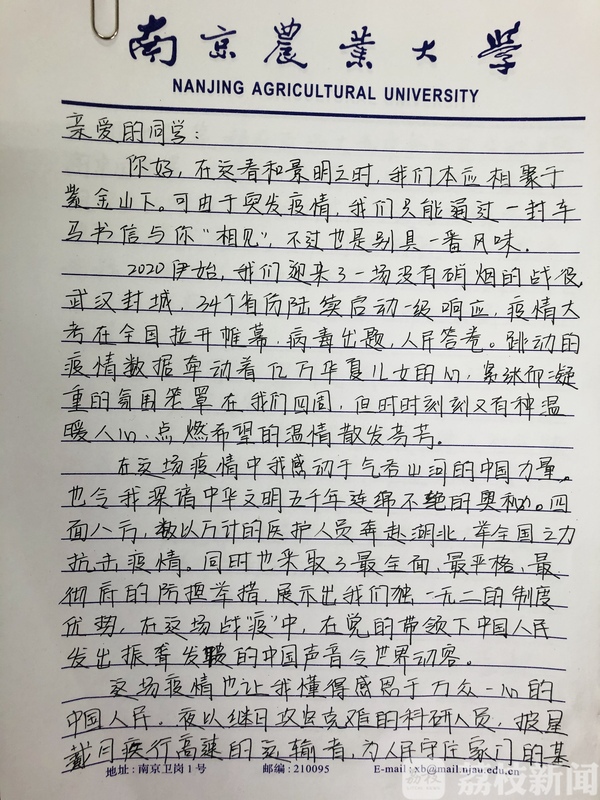 南京農業大學
NANJING AGRICULTURAL UNIVERSITY
亲爱的同学：
你好，在这春和景明之时，我们本应相聚于
紫金山下。可由于突发疫情，我们只能通过一封车
马书信与你“相见”，不过也是别具一番风味。
2020伊始，我们迎来了一场没有硝烟的战役，
武汉封城，34个省份陆续启动一级响应，疫情大
考在全国拉开帷幕，病毒出题，人民答卷。跳动的
疫情数据牵动着亿万华夏儿女的心，紧张而凝
重的氛围笼罩在我们四周，但时时刻刻又有种温
暖人心、点燃希望的温情散发芬芳。
在这场疫情中我感动于气吞山河的中国力量。
也令我深谙中华文明五千年连绵不绝的奥秘。四
面八方，数以万计的医护人员奔赴湖北，举全国之力
抗击疫情。同时也采取了最全面、最严格、最
彻底的防控举措，展示出我们独一无二的制度
优势，在这场战“疫”中，在党的带领下中国人民
发出振聋发聩的中国声音令世界动容。
这场疫情也让我懂得感恩于万众一心的
中国人民。夜以继日攻坚克难的科研人员，披星
戴月疾行高速的运输者，为人民守住家门的基
地址：南京卫岗1号 邮编：210095 E-mail：xb@mail.njau.edu.cn
荔枝新闻